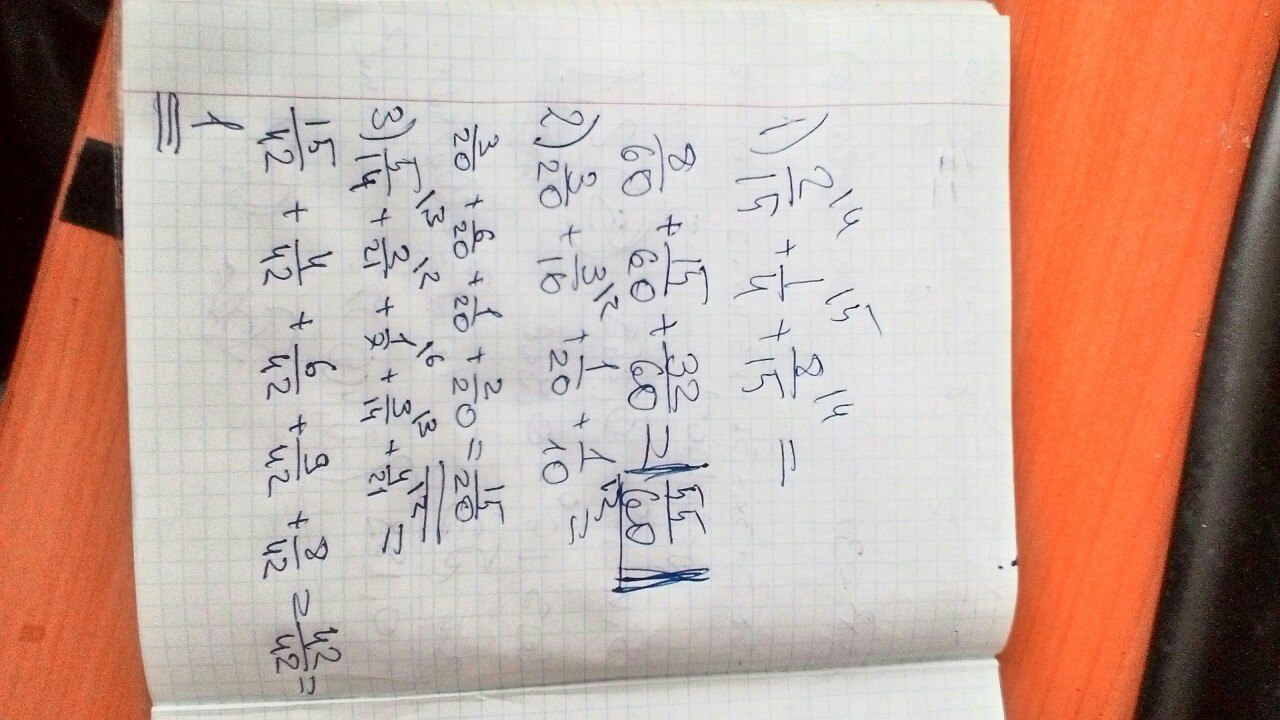 1) 2/15 |4 + 1/4 |15 + 8/15 |4 =
8/60 + 15/60 + 32/60 = 55/60
2) 3/20 + 3/10 |2 + 1/20 + 1/10 |2 =
3/20 + 6/20 + 1/20 + 2/20 = 15/20
3) 5/14 |3 + 2/21 |2 + 1/7 |6 + 3/14 |3 + 4/21 |2 =
15/42 + 4/42 + 6/42 + 9/42 + 8/42 = 42/42 =
1